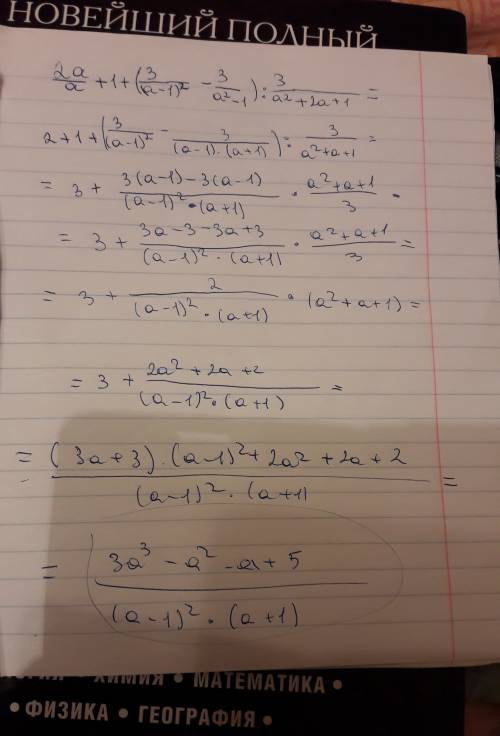 НОВЕЙШИЙ ПОЛНЫЙ
2a/a + 1 + (3/(a-1)² - 3/(a²-1)) : 3/(a²+2a+1) =
2+1+(3/(a-1)² - 3/((a-1)·(a+1))) : 3/(a²+a+1) =
= 3 + (3(a-1)-3(a-1))/((a-1)²·(a+1)) · (a²+a+1)/3 ·
= 3 + (3a-3-3a+3)/((a-1)²·(a+1)) · (a²+a+1)/3 =
= 3 + 2/((a-1)²·(a+1)) · (a²+a+1) =
= 3 + (2a²+2a+2)/((a-1)²·(a+1)) =
= ((3a+3)·(a-1)²+2a²+2a+2)/((a-1)²·(a+1)) =
= (3a³-a²-a+5)/((a-1)²·(a+1))
ХИМИЯ • МАТЕМАТИКА •
• ФИЗИКА • ГЕОГРАФИЯ •